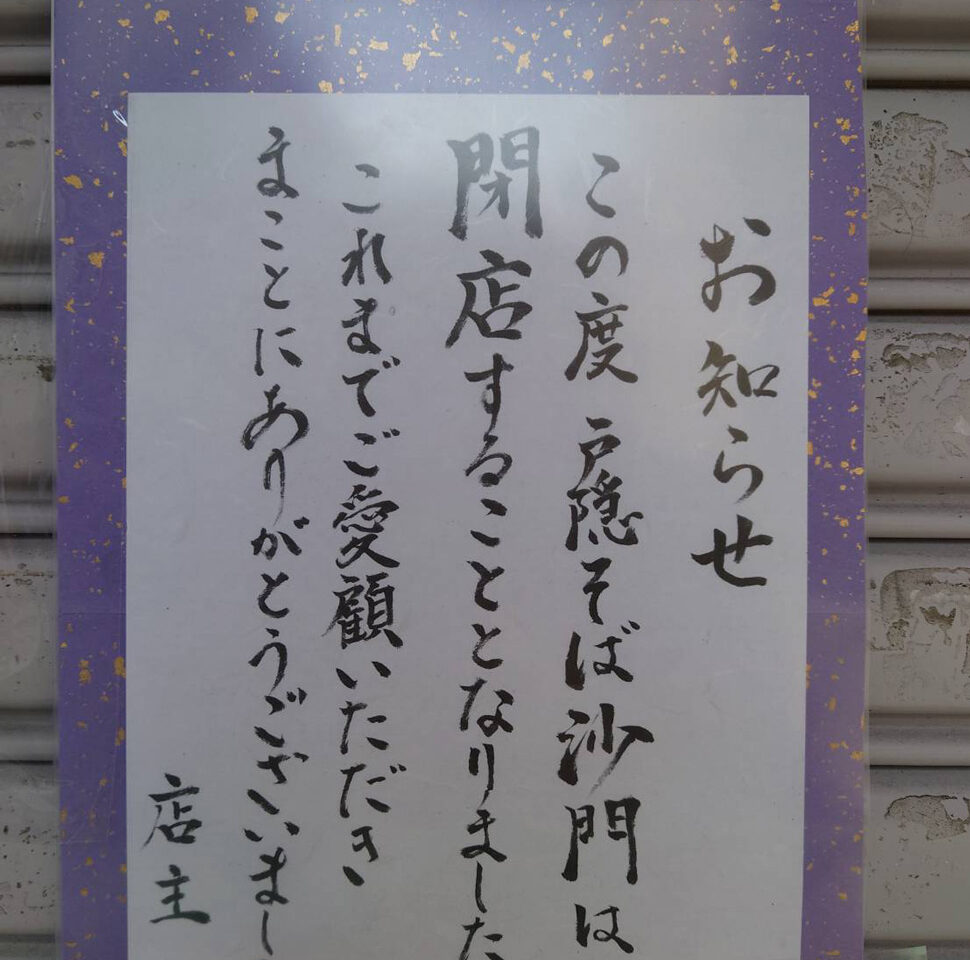 お知らせ
この度 戸隠そば沙門は
閉店することとなりました
これまでご愛顧いただき
まことにありがとうございまし
店主